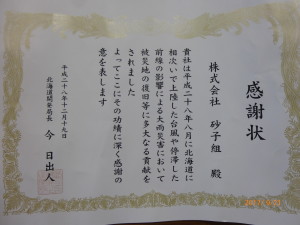 感謝状
株式会社 砂子組 殿
貴社は平成二十八年八月に北海道に
相次いで上陸した台風や停滞した
前線の影響による大雨災害において
被災地の復旧等に多大なる貢献を
されました
よってここにその功績に深く感謝の
意を表します
平成二十八年十二月十九日
北海道開発局長 今 日出人